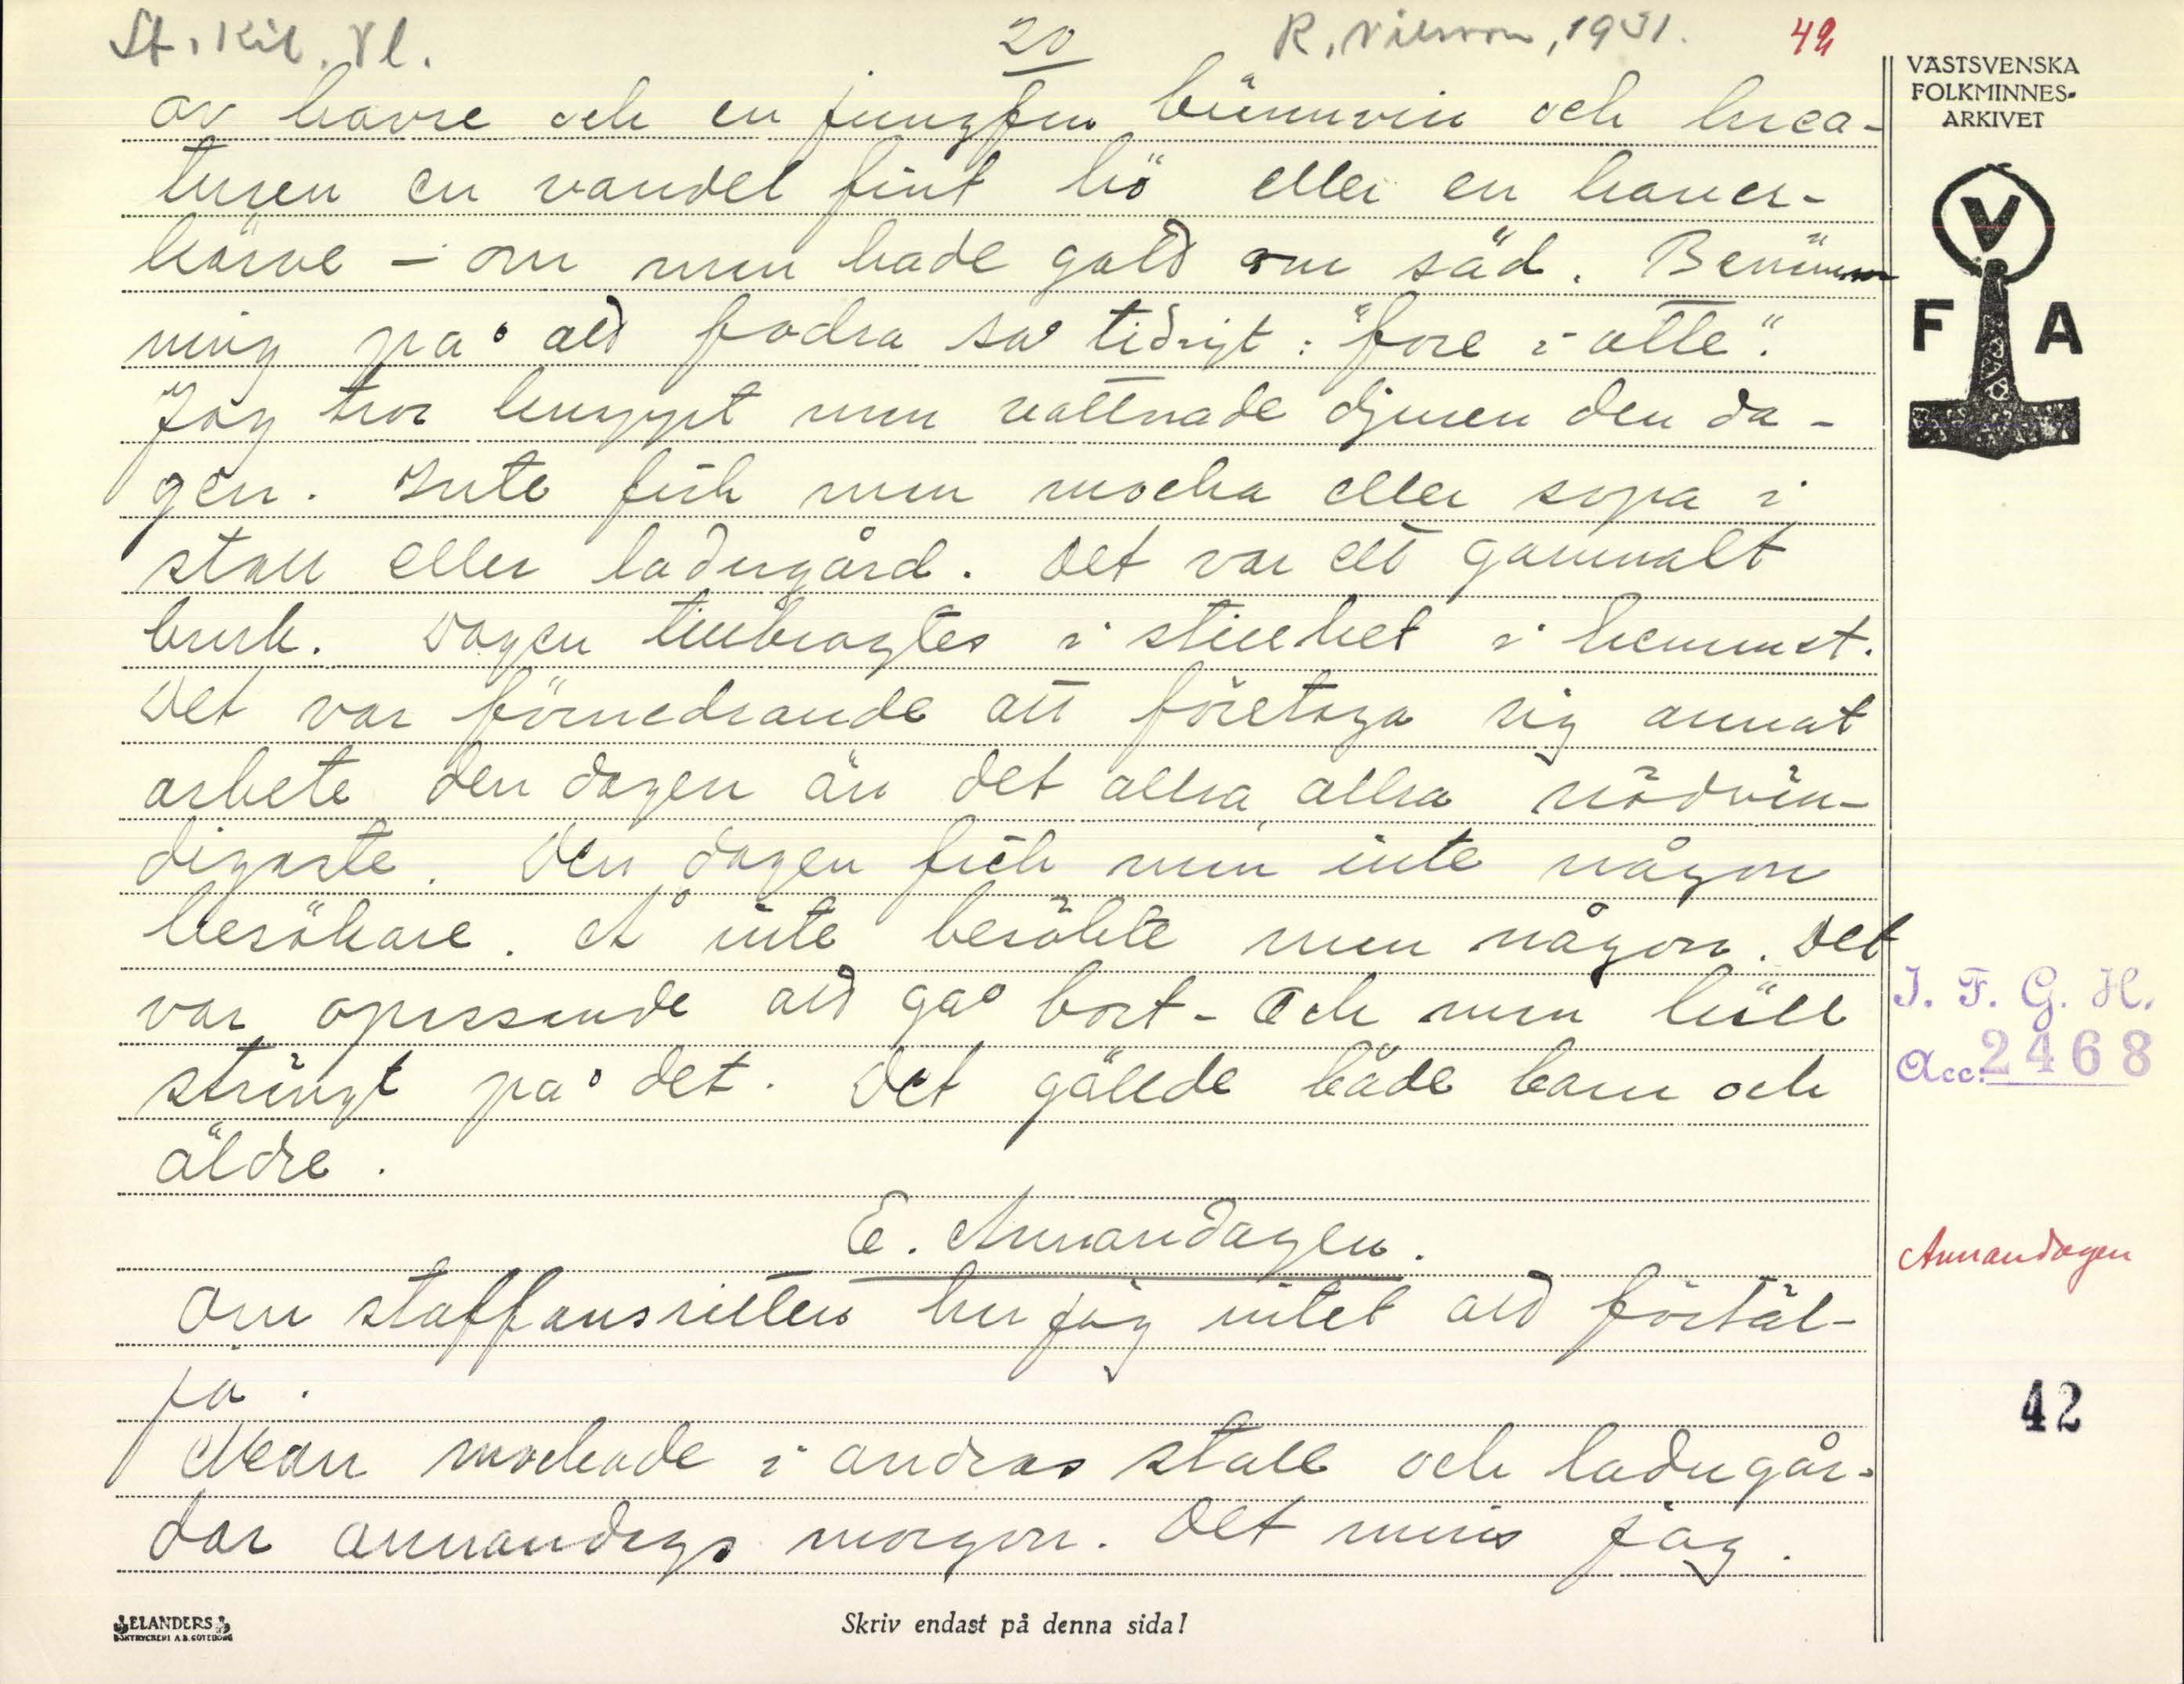 St. Kil. Vl. 20 R. Nilsson, 1931. 42
VÄSTSVENSKA
FOLKMINNES-
ARKIVET
V
F A
av havre och en jungfru bünnvin och krea-
turen en vandel fint hö eller en haver-
kärve – om man hade gott om säd. Benäm
ning på att fodra så tidigt: "fore i otte".
Jag tror knappt man vattnade djuren den da-
gen. Inte fick man mocka eller sopa i
stall eller ladugård. Det var ett gammalt
bruk. Dagen tillbragtes i stillhet i hemmet.
Det var förnedrande att företaga sig annat
arbete den dagen än det allra, allra nödvän-
digaste. Den dagen fick man inte någon
besökare. Å inte besökte man någon. Det
var opassande att gå bort – Och man höll
strängt på det. Det gällde både barn och
äldre.
E. Annandagen.
Om staffansritten har jag intet att förtäl-
ja.
Man mockade i andras stall och ladugår-
dar annandags morgon. Det minns jag.
I. F. G. H.
Acc. 2468
Annandagen
42
ELANDERS
BOKTRYCKERI A.B. GÖTEBORG
Skriv endast på denna sida!